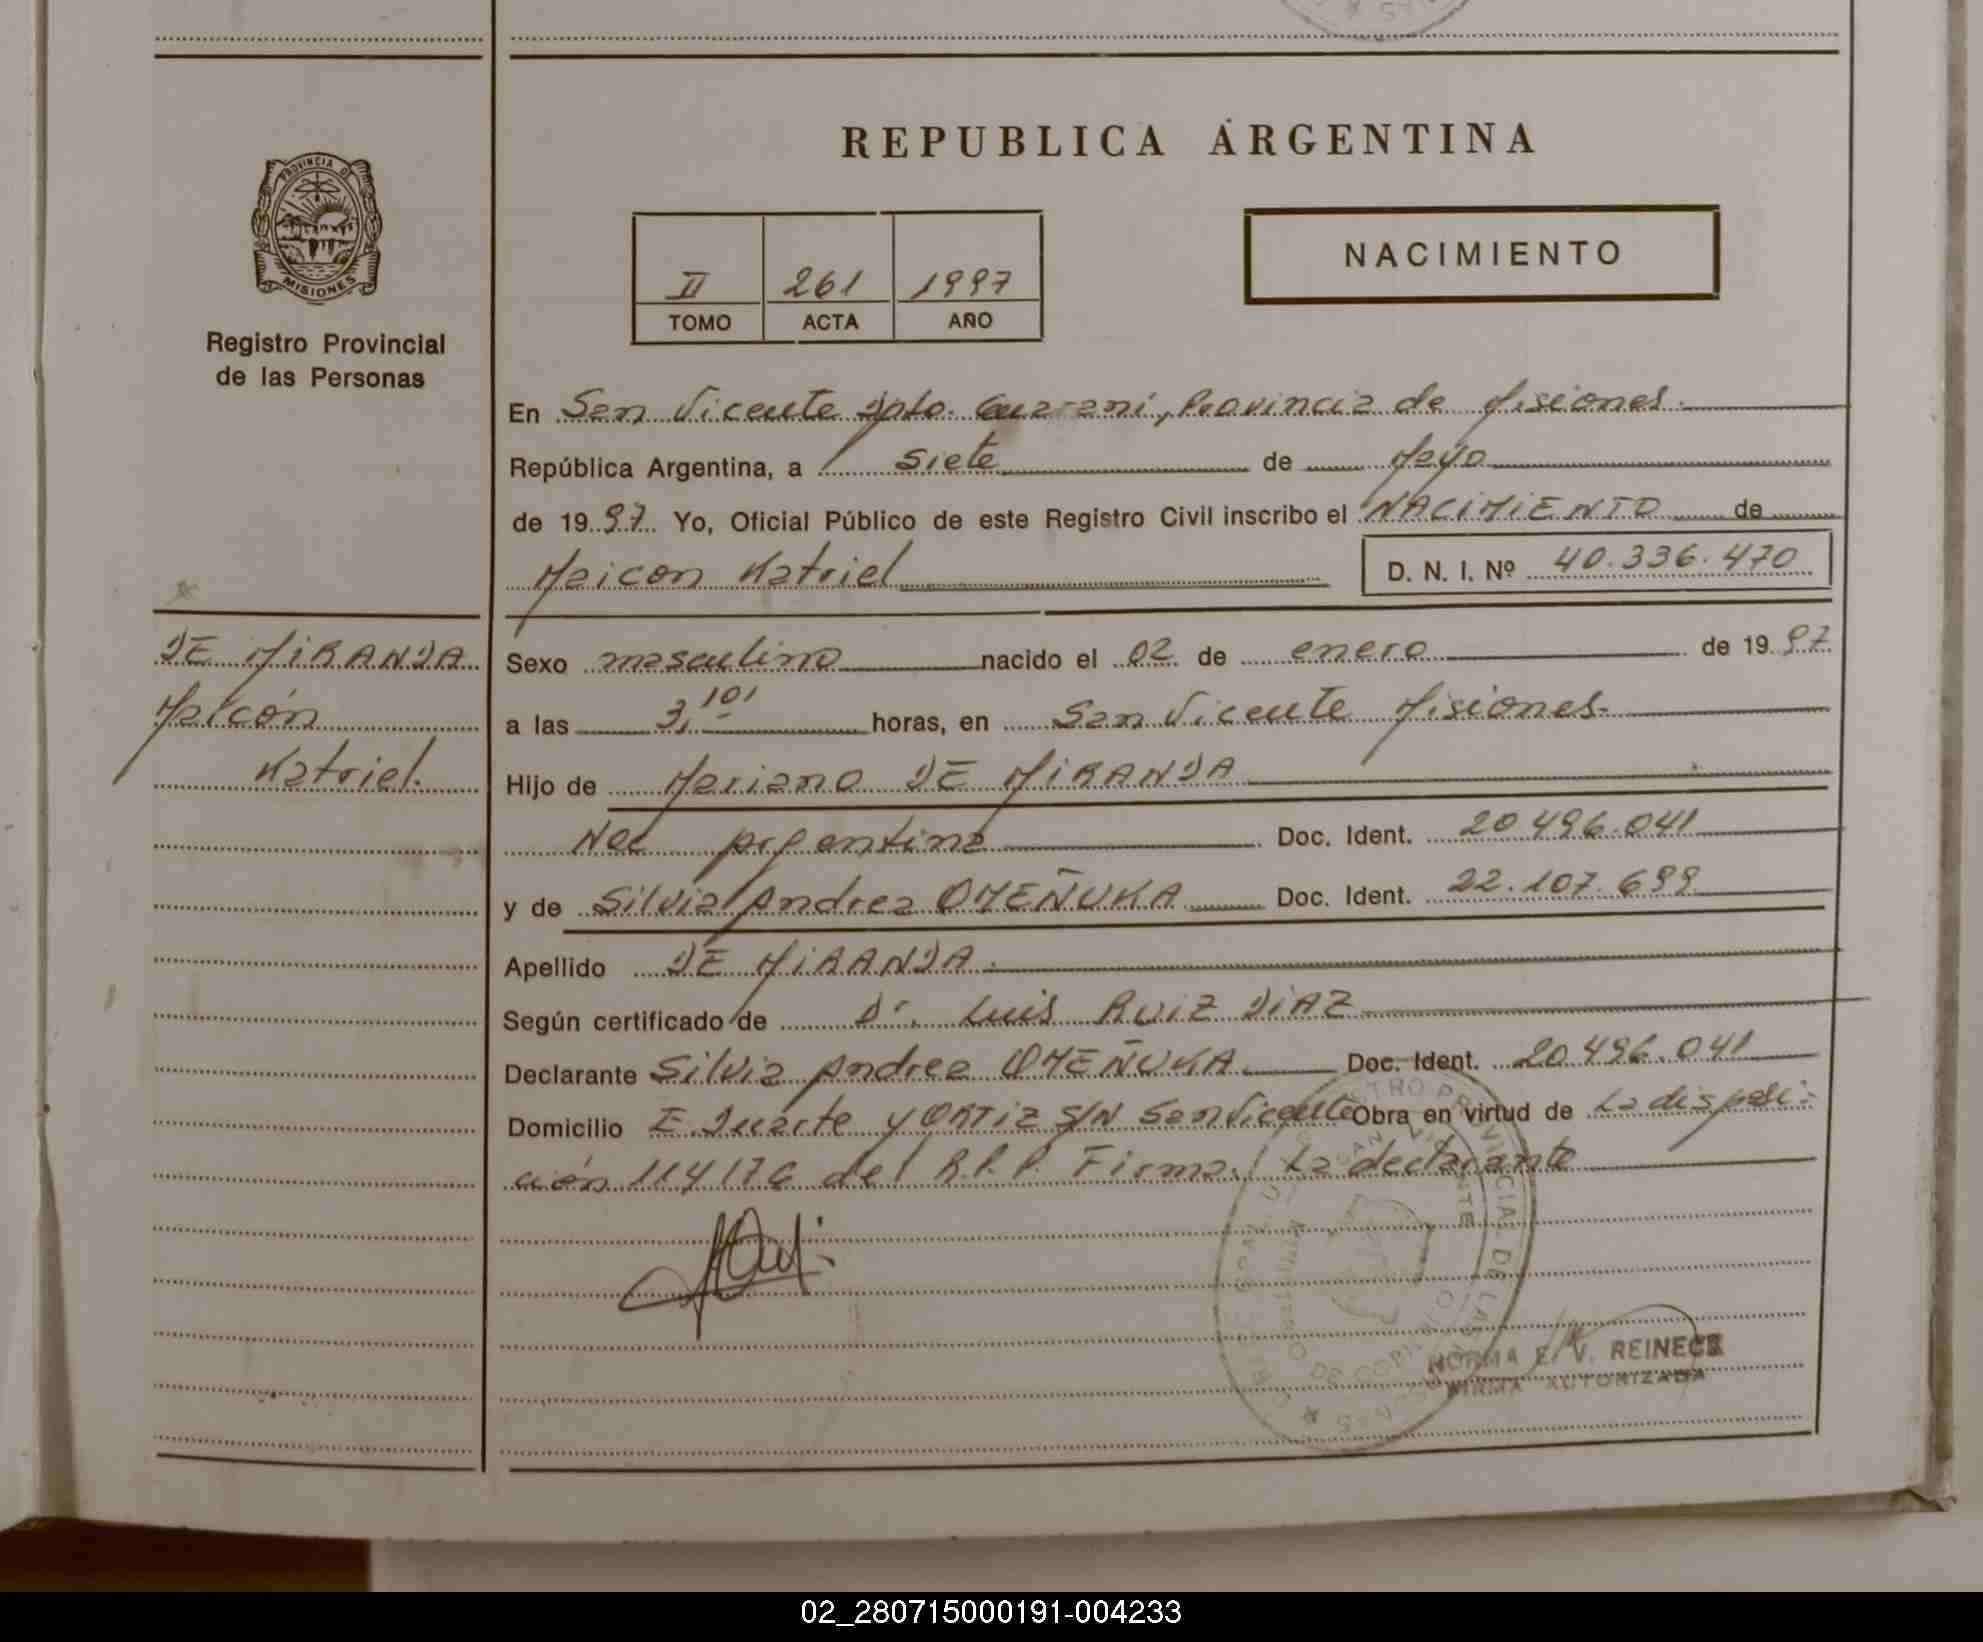 REPUBLICA ARGENTINA
PROVINCIA DE
MISIONES
Registro Provincial
de las Personas
II 261 1997
TOMO ACTA AÑO
NACIMIENTO
En San Vicente Dpto. Guaraní, Provincia de Misiones.
República Argentina, a Siete de Mayo
de 1997 Yo, Oficial Público de este Registro Civil inscribo el NACIMIENTO de
Maicon Katriel D. N. I. Nº 40.336.470
DE MIRANDA
Maicón
Katriel.
Sexo masculino nacido el 02 de enero de 1997
a las 3,10' horas, en San Vicente Misiones.
Hijo de Mariano DE MIRANDA
Nac argentina Doc. Ident. 20496.041
y de Silvia Andrea OMEÑUKA Doc. Ident. 22.107.699
Apellido DE MIRANDA.
Según certificado de Dr. Luis RUIZ DIAZ
Declarante Silvia Andrea OMEÑUKA Doc. Ident. 20496.041
Domicilio E. Duarte y ORTIZ S/N San Vicente Obra en virtud de La disposi-
ción 114/76 del R.P.P. Firma: La declarante
NORMA E. V. REINECK
FIRMA AUTORIZADA
02_280715000191-004233